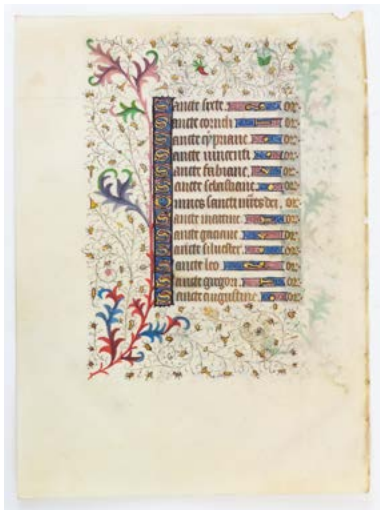 Sancte sixte. or.
Sancte corneli or.
Sancte cypriane. or.
Sancte vincenti or.
Sancte fabiane. or.
Sancte sebastiane. or.
Omnes sancti mr̄es dei. or.
Sancte martine or.
Sancte gaciane or.
Sancte silvester. or.
Sancte leo or.
Sancte gregori or.
Sancte augustine. or.